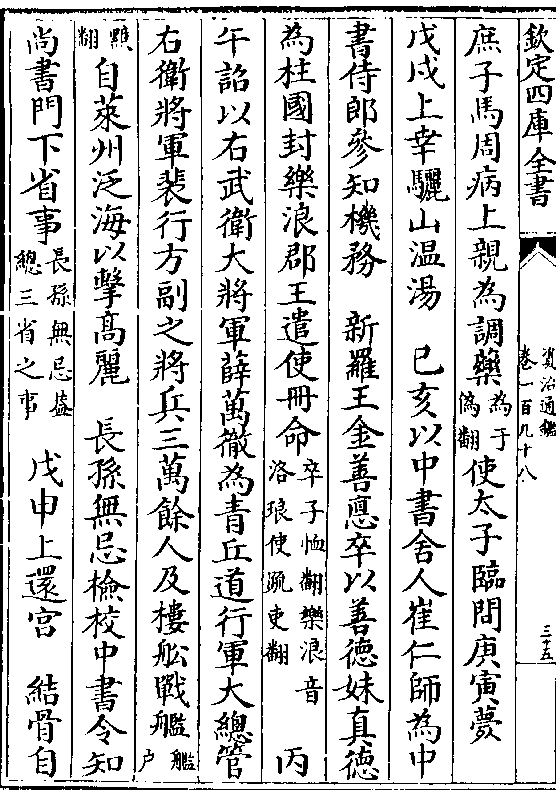 欽定四庫全書
資治通鑑
卷一百九十八
三十五
庶子馬周病上親為調藥為于偽翻使太子臨問庚寅薨
戊戌上幸驪山温湯　己亥以中書舍人崔仁師為中
書侍郎參知機務　新羅王金善悳卒以善徳妹真徳
為柱國封樂浪郡王遣使冊命卒子恤翻樂浪音洛琅使疏吏翻　丙
午詔以右武衛大將軍薛萬徹為青丘道行軍大總管
右衛將軍裴行方副之將兵三萬餘人及樓船戰艦艦户
黯翻自萊州泛海以擊髙麗　長孫無忌檢校中書令知
尚書門下省事長孫無忌葢總三省之事　戊申上還宫　結骨自